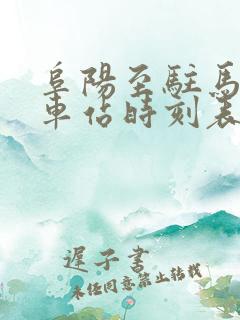 阜陽至駐馬
車佔時刻表
遲子書
未经同意禁止转载